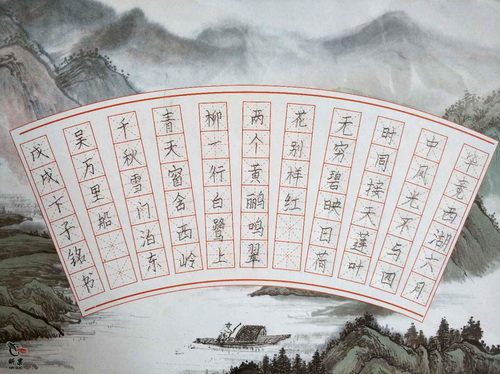 毕竟西湖六月
中风光不与四
时同接天莲叶
无穷碧映日荷
花别样红
两个黄鹂鸣翠
柳一行白鹭上
青天窗含西岭
千秋雪门泊东
吴万里船
戊戌卞子铭书